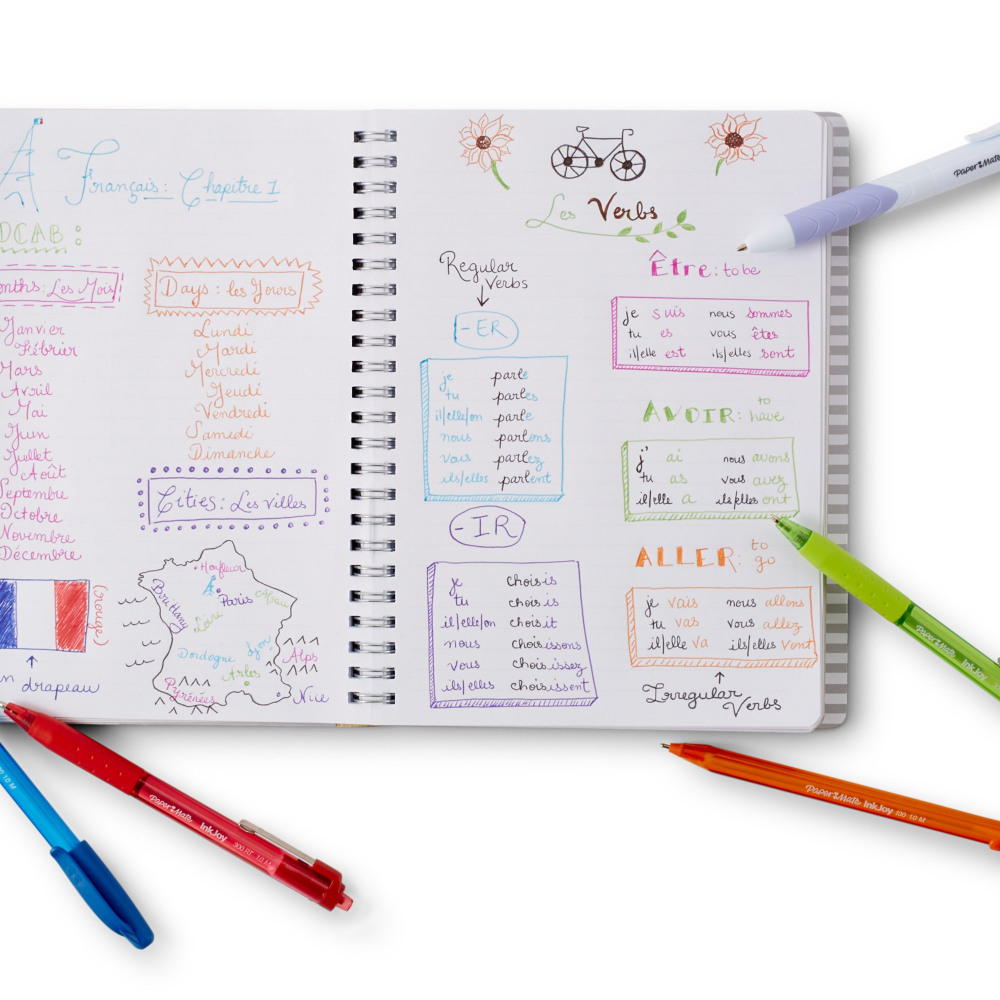 Français: Chapitre 1
OCAB:
onths: Les Mois
Janvier
Fébrier
Mars
Avril
Mai
Juin
Juillet
Août
Septembre
Octobre
Novembre
Décembre
Days: les Jours
Lundi
Mardi
Mercredi
Jeudi
Vendredi
Samedi
Dimanche
Cities: Les Villes
Honfleur
Brittany
Paris
Loire
Dordogne
Dijon
Alps
Arles
Pyrénées
Nice
(rouge)
n drapeau
Les Verbs
Regular
Verbs
-ER
je parle
tu parles
il/elle/on parle
nous parlons
vous parlez
ils/elles parlent
-IR
je choisis
tu choisis
il/elle/on choisit
nous choisissons
vous choisissez
ils/elles choisissent
Être: to be
je suis nous sommes
tu es vous êtes
il/elle est ils/elles sont
AVOIR: to have
j' ai nous avons
tu as vous avez
il/elle a ils/elles ont
ALLER: to go
je vais nous allons
tu vas vous allez
il/elle va ils/elles vont
Irregular
Verbs
Paper Mate
Paper Mate InkJoy
Paper Mate InkJoy 100 1.0 M
Paper Mate InkJoy 300 RT 1.0 M
100 1.0 M